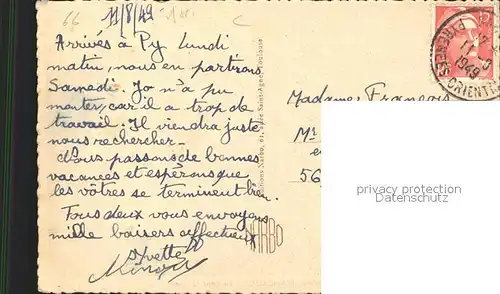 66
11/8/49
C
Arrivés à Py Lundi
matin, nous en partirons
Samedi. Jo n'a pu
monter, car il a trop de
travail. Il viendra juste
nous rechercher.
Nous passons de bonnes
vacances et espérons que
les vôtres se terminent bien.
Tous deux vous envoyons
mille baisers affectueux
Yvette
Editions Narbo, 61, r. de Saint-Agne, Toulouse
NARBO
Madame François
Mi
56
PY
11 -8
1949
PYRÉNÉES ORIENTALES
privacy protection
Datenschutz